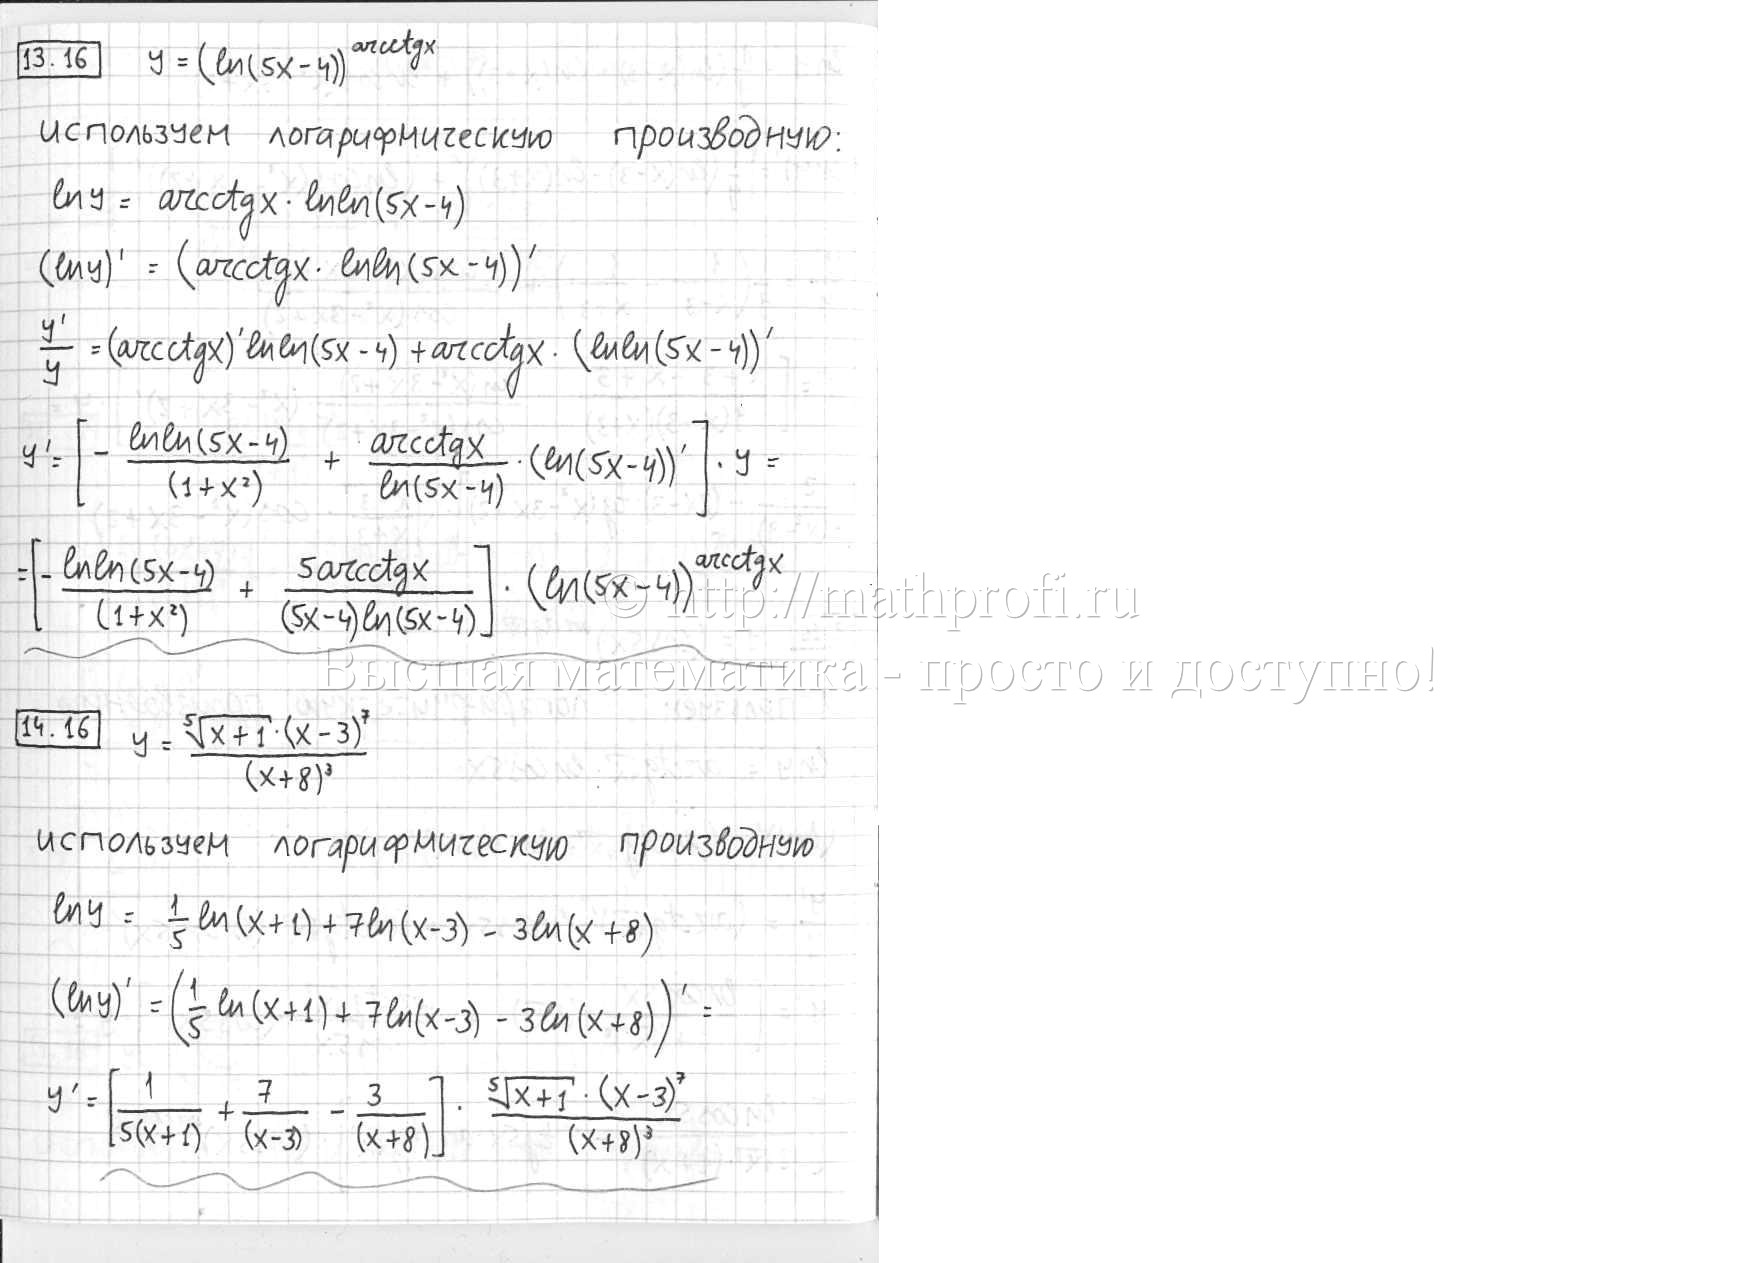 13.16 y = (ln(5x-4))^arcctgx
используем логарифмическую производную:
lny = arcctgx · lnln(5x-4)
(lny)' = (arcctgx · lnln(5x-4))'
y'/y = (arcctgx)'lnln(5x-4) + arcctgx · (lnln(5x-4))'
y' = [ - lnln(5x-4)/(1+x²) + arcctgx/ln(5x-4) · (ln(5x-4))' ] · y =
= [ - lnln(5x-4)/(1+x²) + 5arcctgx/((5x-4)ln(5x-4)) ] · (ln(5x-4))^arcctgx
© http://mathprofi.ru
Высшая математика - просто и доступно!
14.16 y = ⁵√(x+1) · (x-3)⁷/(x+8)³
используем логарифмическую производную
lny = 1/5 ln(x+1) + 7ln(x-3) - 3ln(x+8)
(lny)' = (1/5 ln(x+1) + 7ln(x-3) - 3ln(x+8))' =
y' = [ 1/(5(x+1)) + 7/(x-3) - 3/(x+8) ] · ⁵√(x+1) · (x-3)⁷/(x+8)³